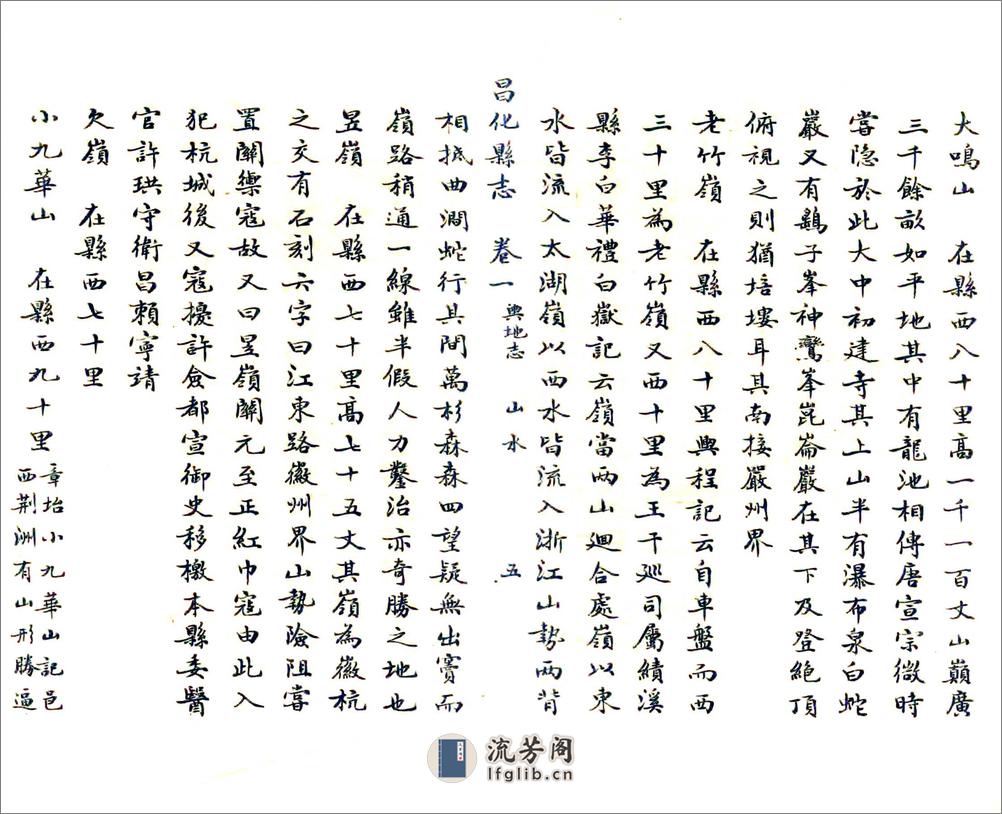 大鳴山　在縣西八十里高一千一百丈山巔廣
三千餘畝如平地其中有龍池相傳唐宣宗微時
嘗隱於此大中初建寺其上山半有瀑布泉白蛇
巖又有鷂子峯神鸞峯崑崙巖在其下及登絕頂
俯視之則猶培塿耳其南接嚴州界
老竹嶺　在縣西八十里輿程記云自車盤而西
三十里為老竹嶺又西十里為王干巡司屬績溪
縣李白華禮白嶽記云嶺當兩山廻合處嶺以東
水皆流入太湖嶺以西水皆流入浙江山勢兩背
昌化縣志　卷一　輿地志　山水　五
相抵曲澗蛇行其間萬杉森森四望疑無出竇而
嶺路稍通一線雖半假人力鑿治亦奇勝之地也
昱嶺　在縣西七十里高七十五丈其嶺為徽杭
之交有石刻六字曰江東路徽州界山勢險阻嘗
置關禦寇故又曰昱嶺關元至正紅巾寇由此入
犯杭城後又寇擾許僉都宣御史移檄本縣委醫
官許珙守衛昌賴寧靖
欠嶺　在縣西七十里
小九華山　在縣西九十里
章坮小九華山記邑
西荆洲有山形勝逼
流芳阁
lfglib.cn